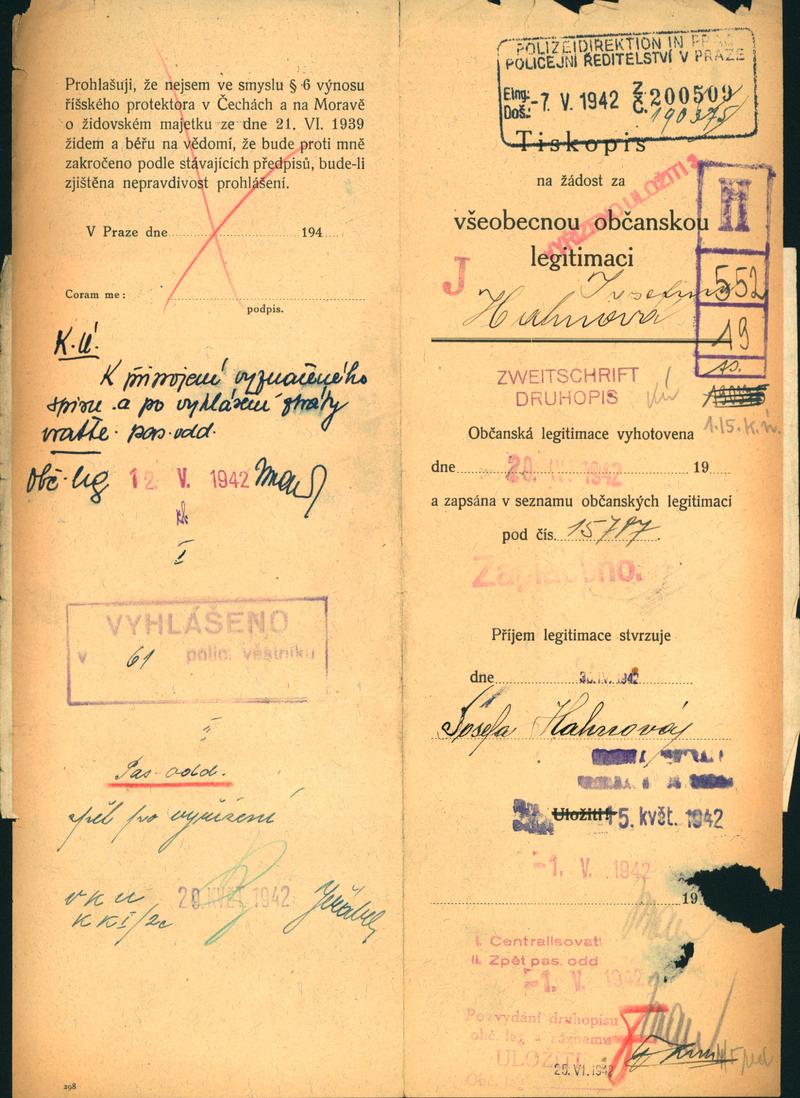 Prohlašuji, že nejsem ve smyslu § 6 výnosu
říšského protektora v Čechách a na Moravě
o židovském majetku ze dne 21. VI. 1939
židem a béřu na vědomí, že bude proti mně
zakročeno podle stávajících předpisů, bude-li
zjištěna nepravdivost prohlášení.
V Praze dne 194
Coram me:
podpis.
K.ú.
K připojení vyznačeného
spisu a po vyhlášení ztráty
vraťte pas. odd.
Obč. leg 12 V. 1942
I
VYHLÁŠENO
v 61 polic. věstníku
Pas. odd.
zpět po vyřízení
29. KVĚT. 1942
298
POLIZEIDIREKTION IN PRAG
POLICEJNÍ ŘEDITELSTVÍ V PRAZE
Eing.: Doš.: -7. V. 1942 Z. Č. 200509
190375
Tiskopis
na žádost za
VYŘÍZENO ULOŽITI
všeobecnou občanskou
legitimaci
II
552
19
J
Josefina
Hahnová
ZWEITSCHRIFT
DRUHOPIS
Občanská legitimace vyhotovena
1./5. K. ú.
dne 20. IV. 1942 19
a zapsána v seznamu občanských legitimací
pod čís. 15797
Zaplaceno.
Příjem legitimace stvrzuje
dne 30. IV. 1942
Josefa Hahnová
Uložiti! 15. květ. 1942
-1. V. 1942
19
I. Centralisovati
II. Zpět pas. odd
-1. V. 1942
Po vydání druhopisu
obč. leg. a záznamu
ULOŽITI
25. VI. 1942